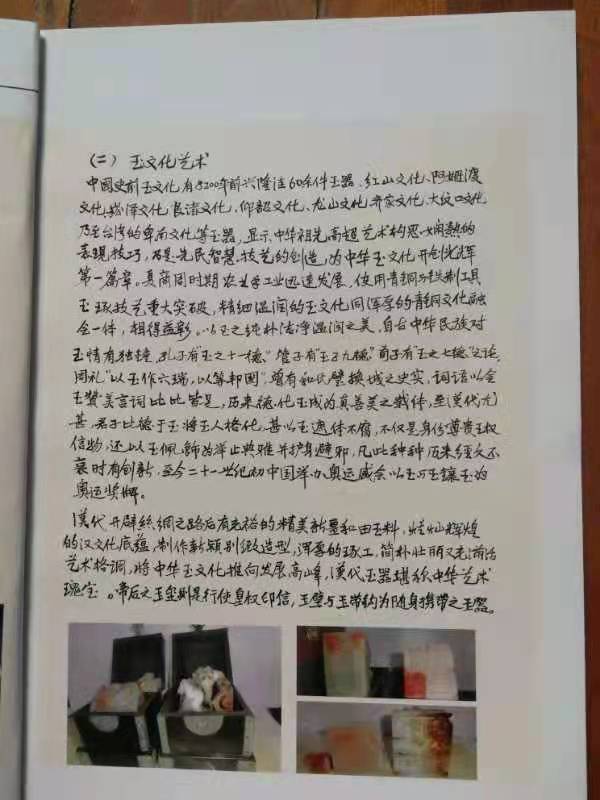 (二) 玉文化艺术
中国史前玉文化有8200年前兴隆洼60余件玉器、红山文化、河姆渡
文化、崧泽文化、良渚文化、仰韶文化、龙山文化、齐家文化、大纹口文化
乃至台湾的卑南文化等玉器,显示中华祖先高超艺术构思、娴熟的
表现技巧,乃是先民智慧、技艺的创造,为中华玉文化开创光辉
第一篇章。夏商周时期农业手工业迅速发展,使用青铜与铁制工具
玉琢技艺重大突破,精细温润的玉文化同浑厚的青铜文化融
全一体,相得益彰。以玉之纯朴洁净温润之美,自古中华民族对
玉情有独钟,孔子有"玉之十一德",管子有"玉子九德",荀子有"玉之七德"之论,
周礼"以玉作六瑞,以等邦国",曾有和氏璧换城之史实,词语以金
玉赞美言词比比皆是,历来德化玉成为真善美之载体,至汉代尤
甚,君子比德于玉,将玉人格化,甚以玉遗体不腐,不仅是身份尊贵王权
信物,还以玉佩饰为洋止典雅并护身避邪,凡此种种历来经久不
衰时有创新,至今二十一世纪初中国洋办奥运盛会以玉与玉镶玉为
奥运奖牌。
汉代开辟丝绸之路后有充裕的精美新疆和田玉料,灿灿辉煌
的汉文化底蕴,制作新颖别致造型,浑厚的琢工,简朴壮丽又充满活
艺术格调,将中华玉文化推向发展高峰,汉代玉器堪称中华艺术
瑰宝。帝后之玉玺则是行使皇权印信,玉璧与玉带钩为随身携带之玉器。